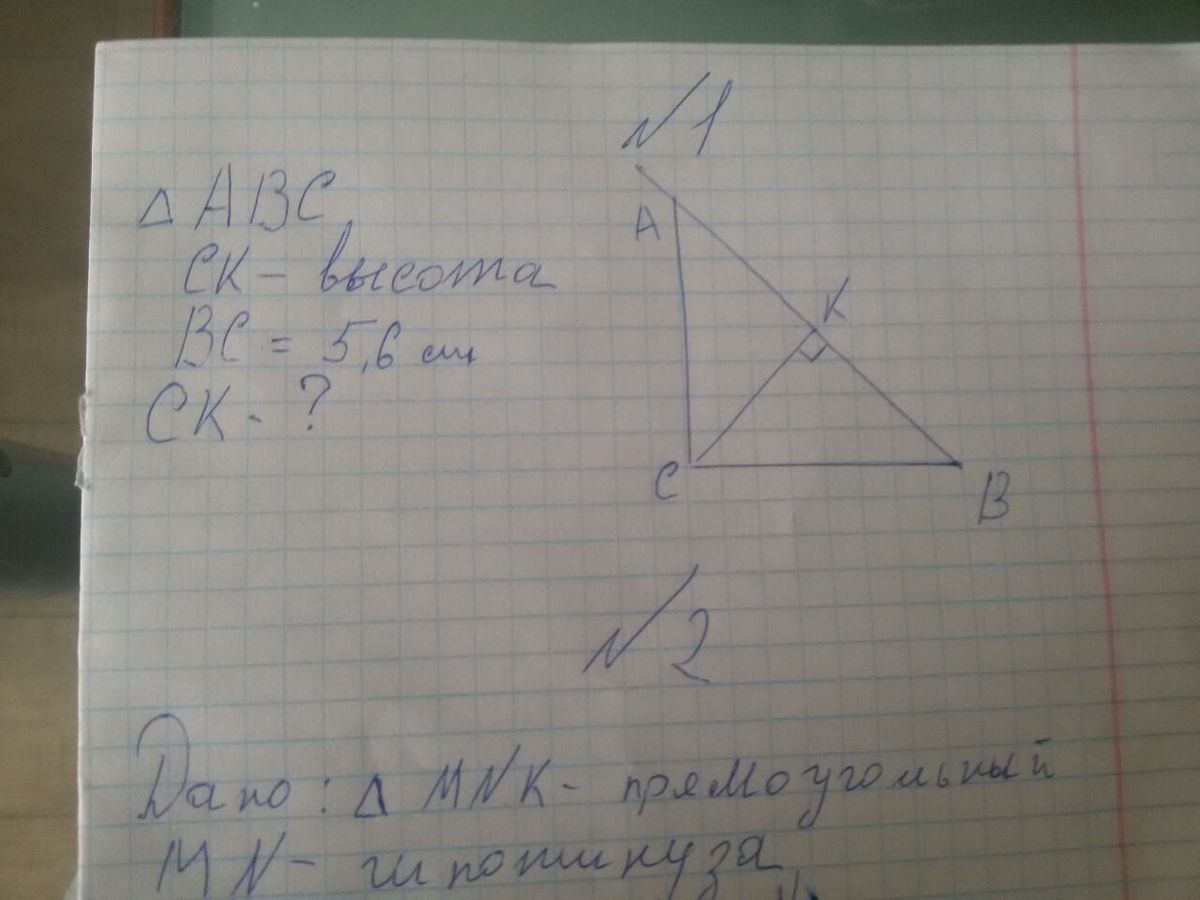 №1
△ABC,
CK - высота
BC = 5,6 см
CK - ?
A
K
C
B
№2
Дано: △ MNK - прямоугольный
MN - гипотинуза